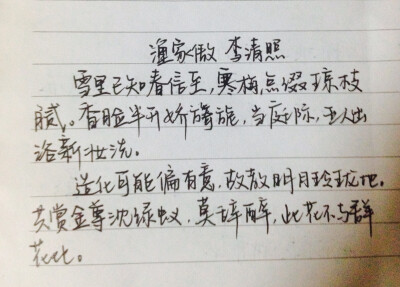 渔家傲 李清照
雪里已知春信至,寒梅点缀琼枝
腻。香脸半开娇旖旎,当庭际,玉人出
浴新妆洗。
造化可能偏有意,故教明月玲珑地。
共赏金尊沈绿蚁,莫辞醉,此花不与群
花比。